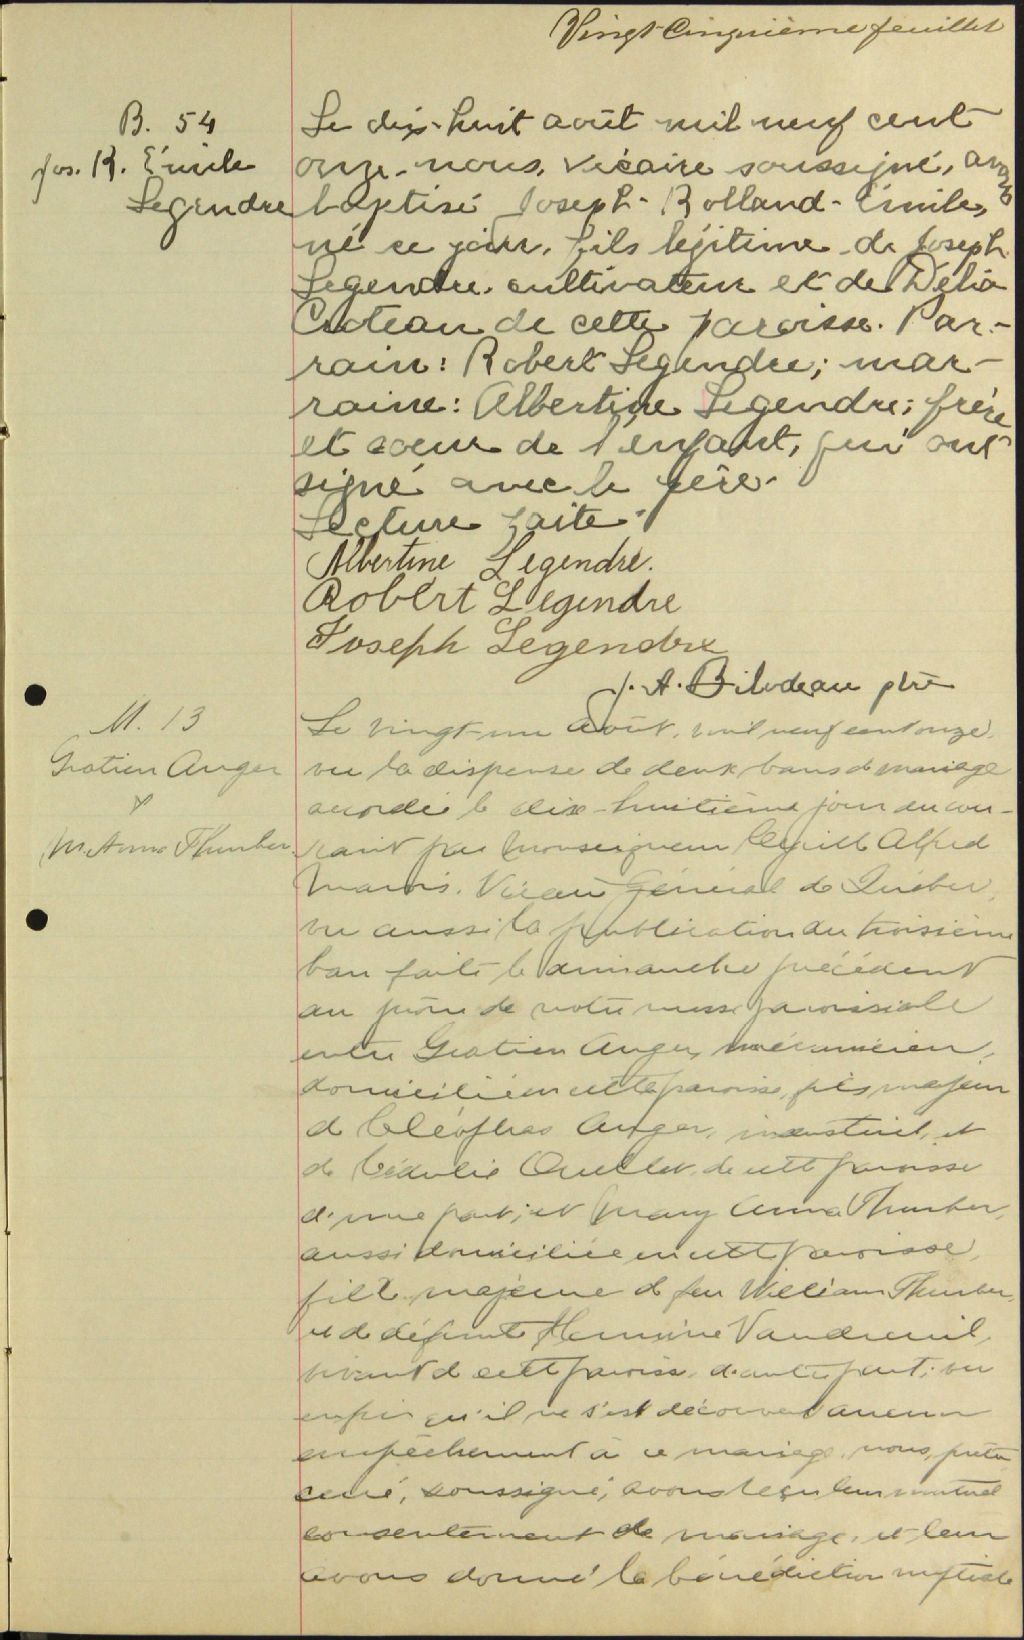 Vingt-Cinquième feuillet
B. 54
Jos. R. Émile
Legendre
Le dix-huit août mil neuf cent
onze, nous, vicaire soussigné, avons
baptisé Joseph-Rolland-Émile,
né ce jour, fils légitime de Joseph
Legendre, cultivateur et de Délia
Croteau de cette paroisse. Par-
rain: Robert Legendre; mar-
raine: Albertine Legendre; frère
et soeur de l'enfant, qui ont
signé avec le père.
Lecture faite.
Albertine Legendre.
Robert Legendre
Joseph Legendre
J. A. Bilodeau ptre
M. 13
Gratien Anger
&
M. Anna Thurber
Le vingt-un août, mil neuf cent onze,
vu la dispense de deux bans de mariage
accordée le dix-huitième jour du cou-
rant par Monseigneur Cyrille Alfred
Marois, Vicaire Général de Québec,
vu aussi la publication du troisième
ban faite le dimanche précédent
au prône de notre messe paroissiale
entre Gratien Anger, mécanicien,
domicilié en cette paroisse, fils majeur
de Cléophas Anger, industriel, et
de Cédulie Ouellet, de cette paroisse
d'une part; et Mary Anna Thurber,
aussi domiciliée en cette paroisse,
fille majeure de feu William Thurber,
et de défunte Hermine Vaudreuil,
vivant de cette paroisse, d'autre part; vu
enfin qu'il ne s'est découvert aucun
empêchement à ce mariage, nous, prêtre
curé, soussigné, avons reçu leur mutuel
consentement de mariage, et leur
avons donné la bénédiction nuptiale